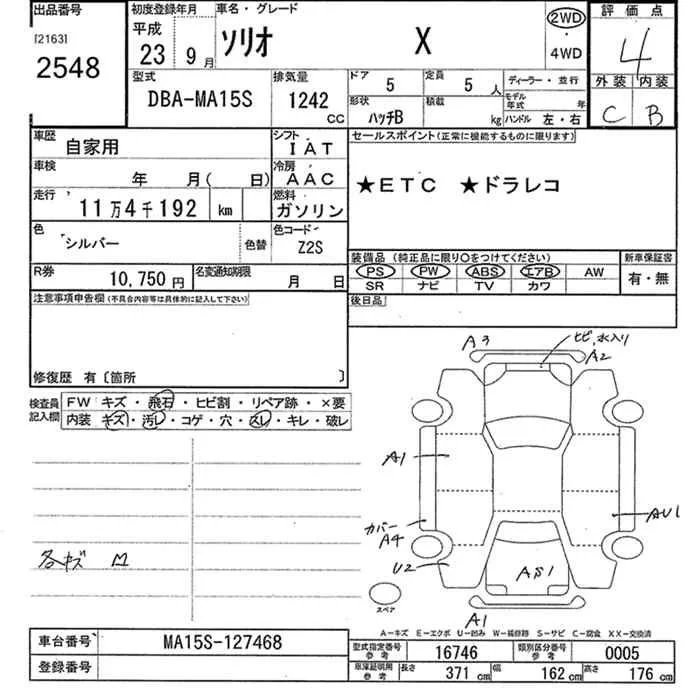 出品番号
[2163]
2548
初度登録年月
平成
23年 9月
車名・グレード
ソリオ X
2WD
・
4WD
評価点
4
外装 内装
C B
型式
DBA-MA15S
排気量
1242
CC
ドア 5
定員 5人
ディーラー・並行
形状 ハッチB
積載 kg
モデル年式 年
ハンドル 左・右
車歴 自家用
シフト IAT
車検 年 月( 日)
冷房 AAC
走行 11万4千192 km
燃料 ガソリン
色 シルバー 色替
色コード Z2S
R券 10,750円
名変通知期限 月 日
セールスポイント(正常に機能するものに限ります)
★ETC ★ドラレコ
装備品 (純正品に限り○をつけてください)
PS PW ABS エアB AW
SR ナビ TV カワ
新車保証書
有・無
後日品
注意事項申告欄(不具合内容等は具体的に記入して下さい)
修復歴 有〔箇所 〕
検査員記入欄
FW キズ・飛石・ヒビ割・リペア跡・×要
内装 キズ・汚レ・コゲ・穴・スレ・キレ・破レ
各キズ M
A3
ヒビ、水入り
A2
A1
AU1
カバー
A4
U2
AS1
A1
スペア
A-キズ E-エクボ U-凹み W-補修跡 S-サビ C-腐食 XX-交換済
車台番号 MA15S-127468
登録番号
型式指定番号 参考 16746
類別区分番号 参考 0005
車庫証明用 参考
長さ 371cm 幅 162cm 高さ 176cm